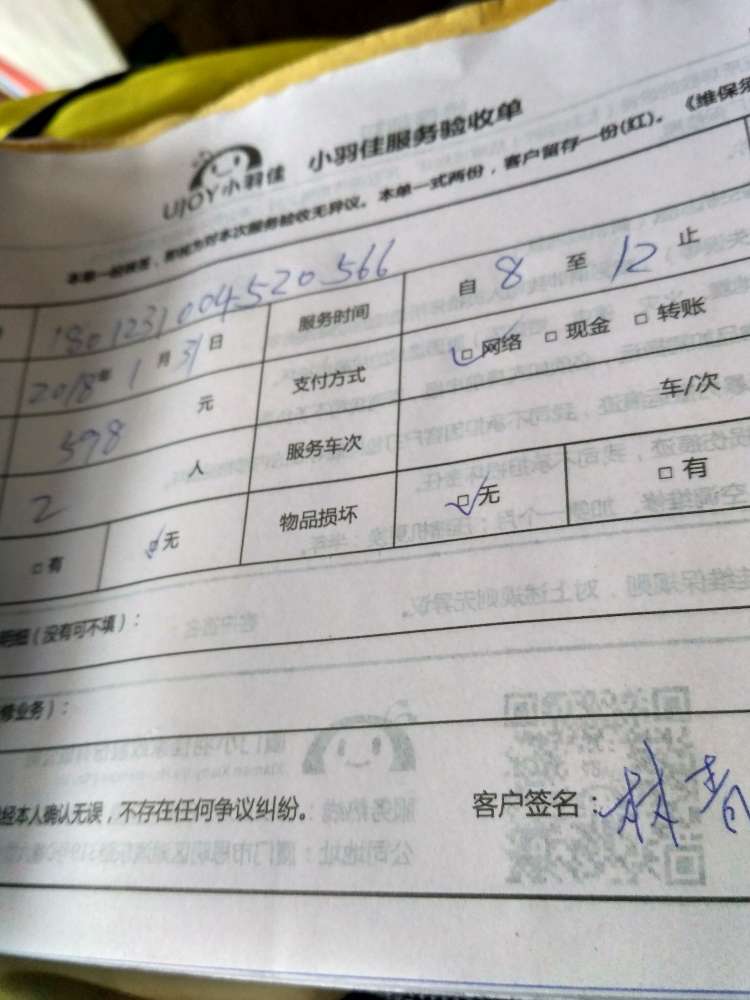 UJOY小羽佳 小羽佳服务验收单
本单一经签署，即视为对本次服务验收无异议。本单一式两份，客户留存一份(红)。《维保条
1801231004520566 服务时间 自 8 至 12 止
2018年 1 月 31 日 支付方式 □网络 □现金 □转账
598 元 服务车次 车/次
2 人 物品损坏 □无 □有
□有 □无
明细（没有可不填）：
修业务）：
经本人确认无误，不存在任何争议纠纷。 客户签名：林青